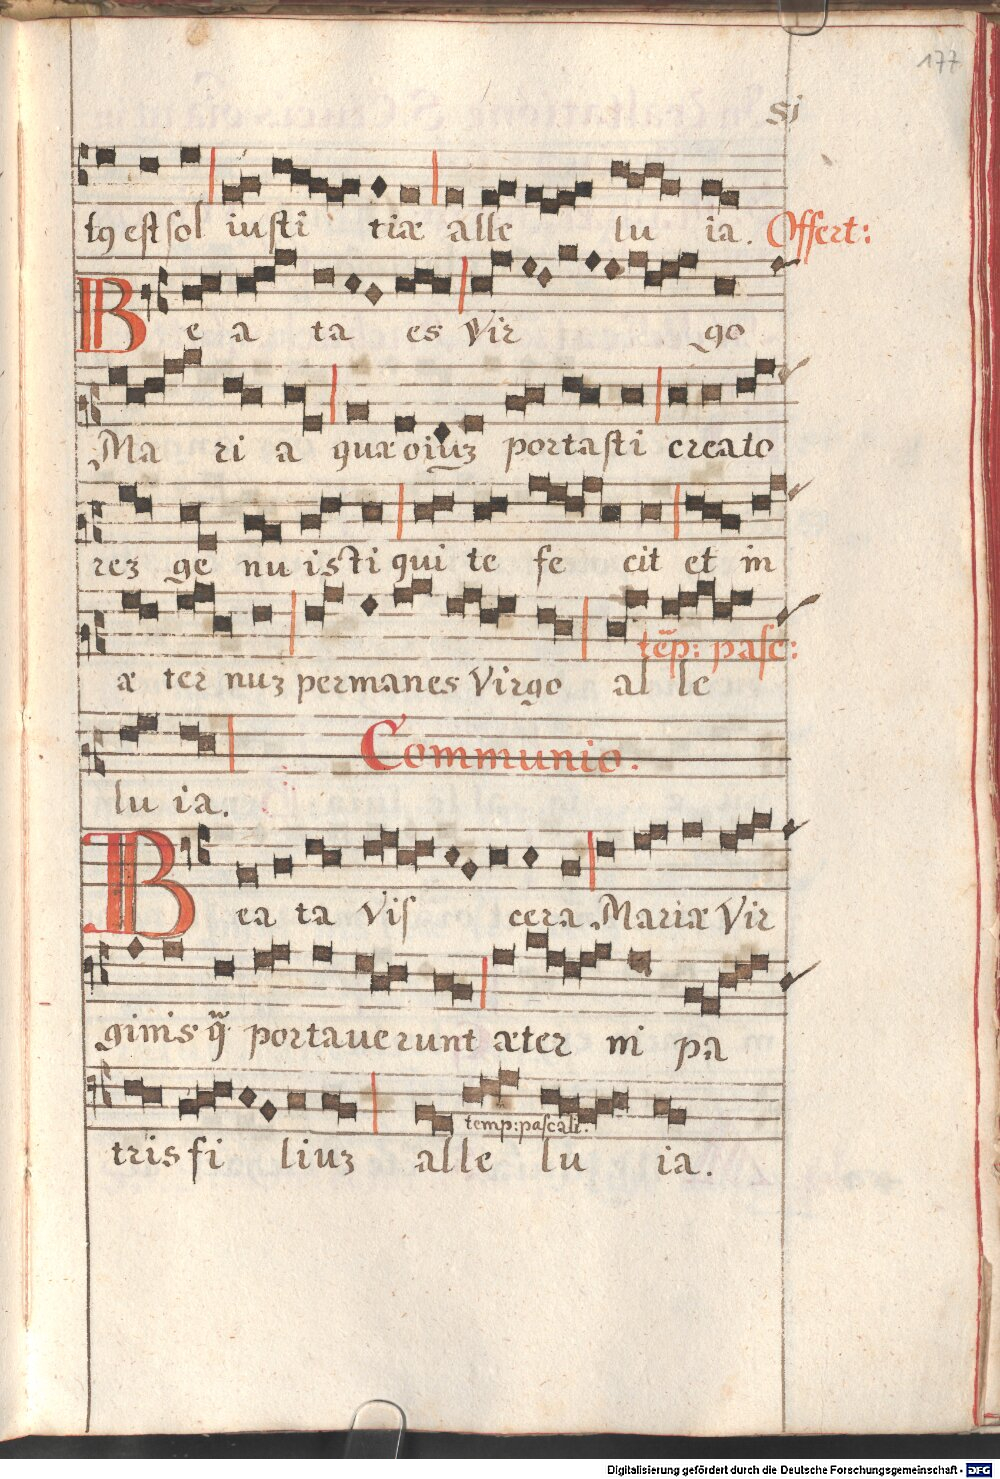 177
si
tꝰ est sol iusti tiæ alle lu ia. Offert:
Be a ta es Vir go
Ma ri a quæ oiuʒ portasti creato
reʒ ge nu isti qui te fe cit et in
têp: pasc:
æ ter nuʒ permanes Virgo al le
Communio.
lu ia.
Bea ta Vis cera Mariæ Vir
ginis q̃ portaverunt æter ni pa
temp: pascali.
tris fi liuʒ alle lu ia.
Digitalisierung gefördert durch die Deutsche Forschungsgemeinschaft - DFG